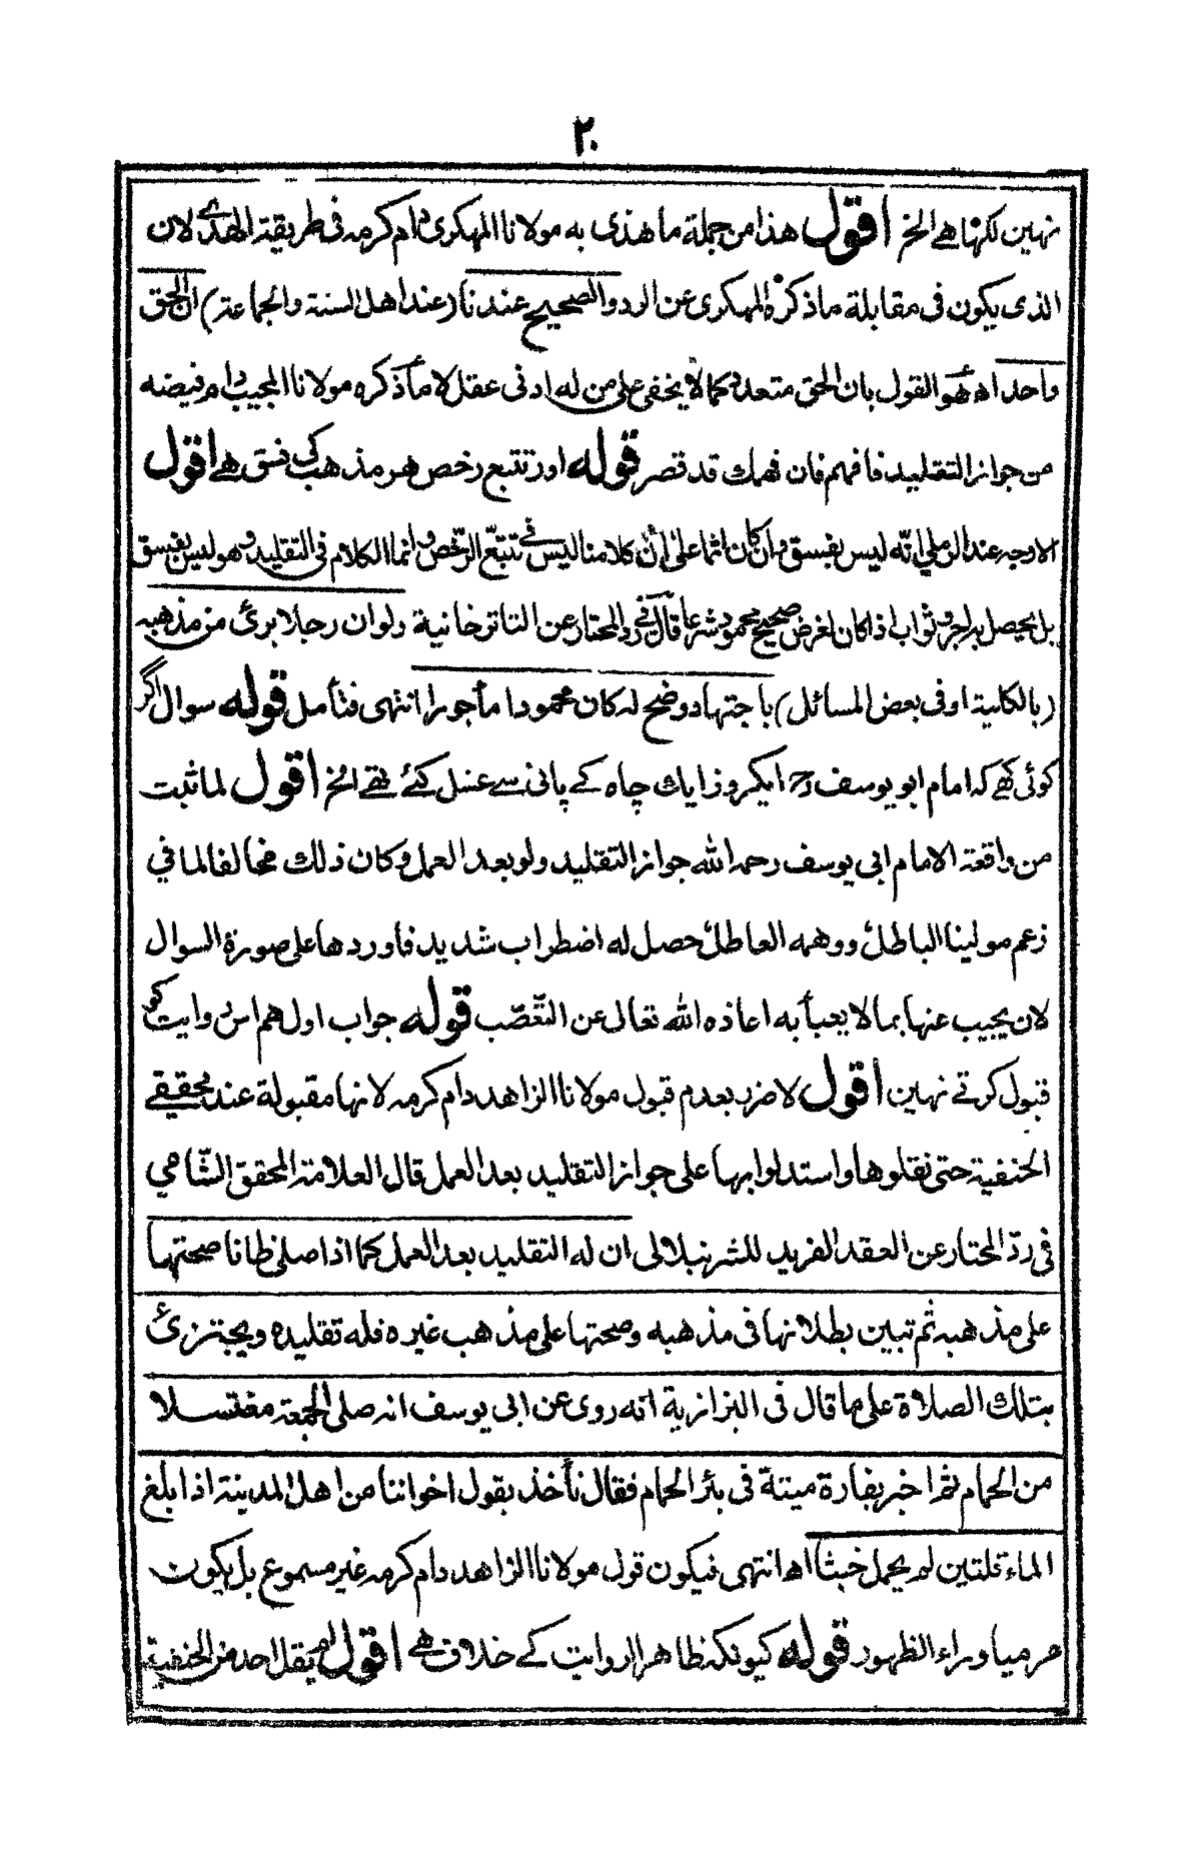 ٢٠
نہین لکہتا ھے الخ اقول ھذا من جملة ما ھذی بہ مولانا المہکری دام کرمہ فی طریقتہ الھدی لان
الذی یکون فی مقابلة ما ذکرہ المہکری عن الرد والصحیح عندنا (عند اھل السنة والجماعة) ان الحق
واحد اھ ھو القول بان الحق متعدد کما لا یخفی علی من لہ ادنی عقل لا ما ذکرہ مولانا المجیب دام فیضہ
من جواز التقلید فافہم فان فہمک قد قصر قولہ اور تتبع رخص ھر مذھب کی فسق ھے اقول
الاوجہ عند الرملی انّہ لیس بفسق وان کان اثما علیٰ ان کلامنا لیس فی تتبّع الرّخص وانما الکلام فی التقلید وھو لیس بفسق
بل یحصل بہ اجر وثواب اذا کان لغرض صحیح محمود شرعا قال فی رد المحتار عن التاترخانیة ولو ان رجلا برئ من مذھبہ
(بالکلیة او فی بعض المسائل) باجتہاد وضح لہ کان محمودا ماجورا انتہی فتأمل قولہ سوال اگر
کوئی کہے کہ امام ابو یوسف رح ایکروز ایک چاہ کے پانی سے غسل کئے تھے الخ اقول لما ثبت
من واقعة الامام ابی یوسف رحمہ اللہ جواز التقلید ولو بعد العمل وکان ذلک مخالفا لما فی
زعم مولینا الباطل ووھمہ العاطل حصل لہ اضطراب شدید فاوردھا علی صورة السوال
لان یجیب عنہا بما لا یعبأ بہ اعاذہ اللہ تعالی عن التّعصّب قولہ جواب اول ھم اس روایت کو
قبول کرتے نہین اقول لا ضرر بعدم قبول مولانا الزاھد دام کرمہ لانہا مقبولة عند محققی
الحنفیة حتی نقلوھا واستدلوا بہا علی جواز التقلید بعد العمل قال العلامة المحقق الشّامی
فی ردّ المحتار عن العقد الفرید للشرنبلالی ان لہ التقلید بعد العمل کما اذا صلی ظانا صحتہا
علی مذھبہ ثم تبین بطلانہا فی مذھبہ وصحتہا علی مذھب غیرہ فلہ تقلیدہ ویجتزئ
بتلک الصلاة علی ما قال فی البزازیة انہ روی عن ابی یوسف انہ صلی الجمعة مغتسلا
من الحمام ثم اخبر بفارة میتة فی بئر الحمام فقال نأخذ بقول اخواننا من اھل المدینة اذا بلغ
الماء قلتین لم یحمل خبثا اھ انتہی فیکون قول مولانا الزاھد دام کرمہ غیر مسموع بل یکون
ھرمیا وراء الظہور قولہ کیونکہ ظاھر الروایت کے خلاف ھے اقول لم یقل احد من الحنفیة